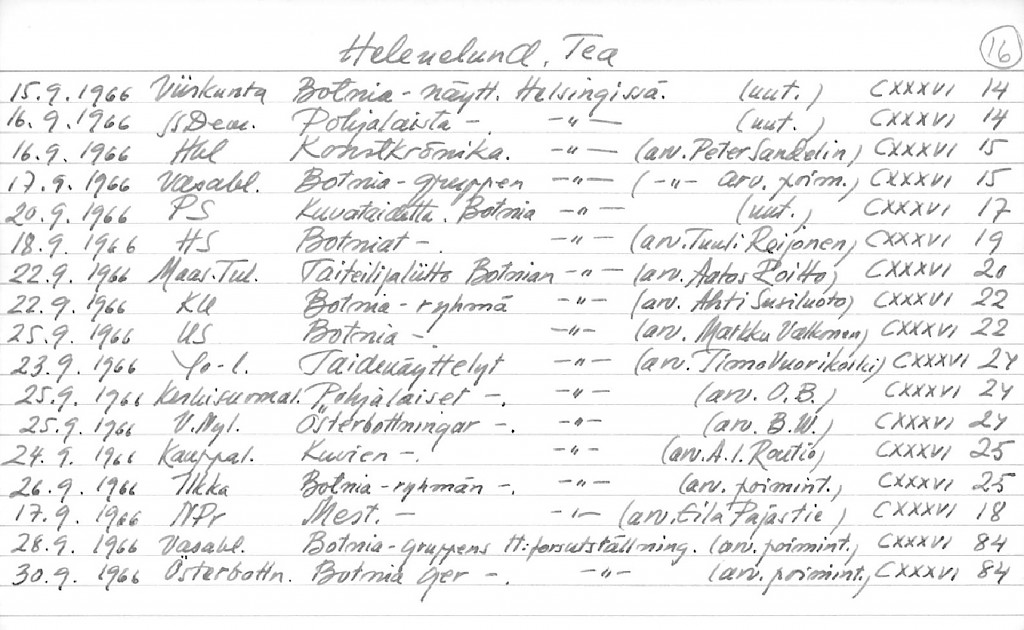 Helenelund, Tea 16
15.9.1966 Viiskunta Botnia-näytt. Helsingissä. (uut.) CXXXVI 14
16.9.1966 Pohjalaista -. -"- (uut.) CXXXVI 14
16.9.1966 Hbl Konstkrönika. -"- (arv. Peter Sandelin) CXXXVI 15
17.9.1966 Vasabl. Botnia-gruppen -"- (-"- arv. poim.) CXXXVI 15
20.9.1966 PS Kuvataidetta. Botnia -"- (uut.) CXXXVI 17
18.9.1966 HS Botniat -. -"- (arv. Tuuli Reijonen) CXXXVI 19
22.9.1966 Maas.Tul. Taiteilijaliitto Botnian -"- (arv. Aatos Roitto) CXXXVI 20
22.9.1966 KU Botnia-ryhmä -"- (arv. Ahti Susiluoto) CXXXVI 22
25.9.1966 US Botnia -. -"- (arv. Markku Valkonen) CXXXVI 22
23.9.1966 Yo-l. Taidenäyttelyt -"- (arv. Timo Vuorikoski) CXXXVI 24
25.9.1966 Pohjalaiset -. -"- (arv. O.B.) CXXXVI 24
25.9.1966 V.Nyl. Österbottningar -. -"- (arv. B.W.) CXXXVI 24
24.9.1966 Kauppal. Kuvien -. -"- (arv. A.I. Routio) CXXXVI 25
26.9.1966 Ilkka Botnia-ryhmän -. -"- (arv. poimint.) CXXXVI 25
17.9.1966 NPr Mest. - -"- (arv. Eila Pajastie) CXXXVI 18
28.9.1966 Vasabl. Botnia-gruppens H:forsutställning. (arv. poimint.) CXXXVI 84
30.9.1966 Österbottn. Botnia ger -. -"- (arv. poimint.) CXXXVI 84